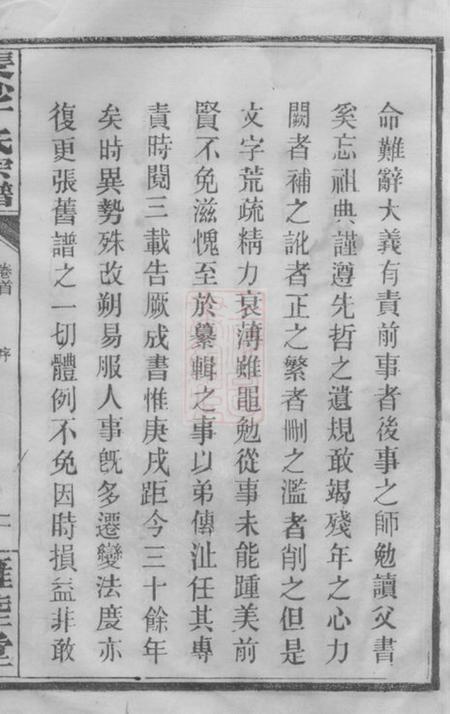 命難辭大義有責前事者後事之師勉讀父書
奚忘祖典謹遵先哲之遺規敢竭殘年之心力
闕者補之訛者正之繁者刪之濫者削之但是
文字荒疏精力衰薄雖黽勉從事未能踵美前
賢不免滋愧至於纂輯之事以弟傳沚任其專
責時閱三載告厥成書惟庚戌距今三十餘年
矣時異勢殊改朔易服人事旣多遷變法度亦
復更張舊譜之一切體例不免因時損益非敢
氏宗譜
卷首
序